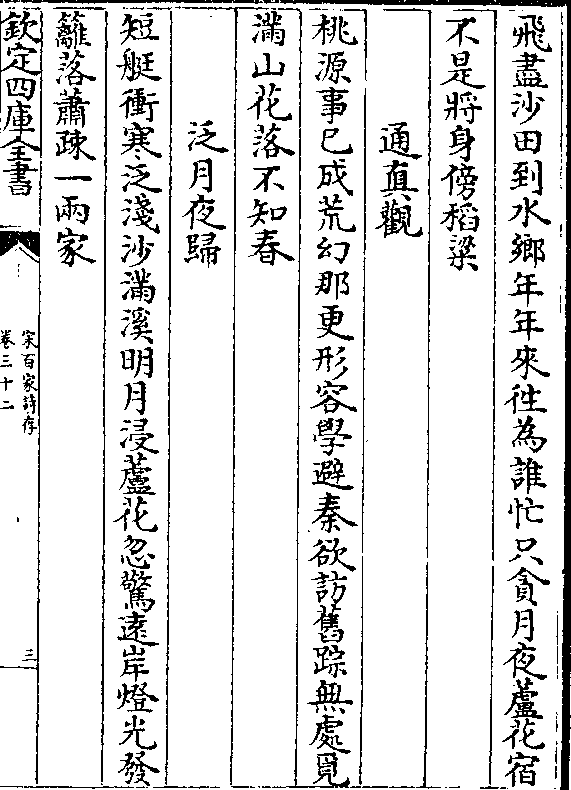 飛盡沙田到水鄉年年來徃為誰忙只貪月夜蘆花宿
不是將身傍稻粱
通真觀
桃源事已成荒幻那更形容學避秦欲訪舊踪無處覓
滿山花落不知春
泛月夜歸
短艇衝寒泛淺沙滿溪明月浸蘆花忽驚遠岸燈光發
籬落蕭疎一兩家
欽定四庫全書
宋百家詩存
卷三十二
三